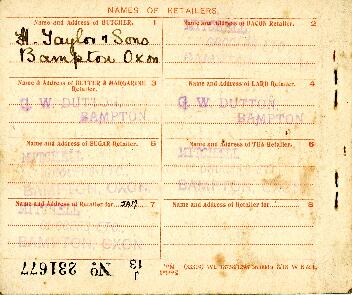 NAMES OF RETAILERS.
Name and Address of BUTCHER. 1
H. Taylor & Sons
Bampton Oxon
Name and Address of BACON Retailer. 2
Name & Address of BUTTER & MARGARINE Retailer. 3
G. W. DUTTON,
BAMPTON
Name & Address of LARD Retailer. 4
G. W. DUTTON,
BAMPTON
Name and Address of SUGAR Retailer. 5
MITCHELL
BAMPTON, OXON.
Name and Address of TEA Retailer. 6
MITCHELL
BAMPTON, OXON.
Name and Address of Retailer for JAM 7
BAMPTON, OXON
Name and Address of Retailer for 8
J 13 No 231677